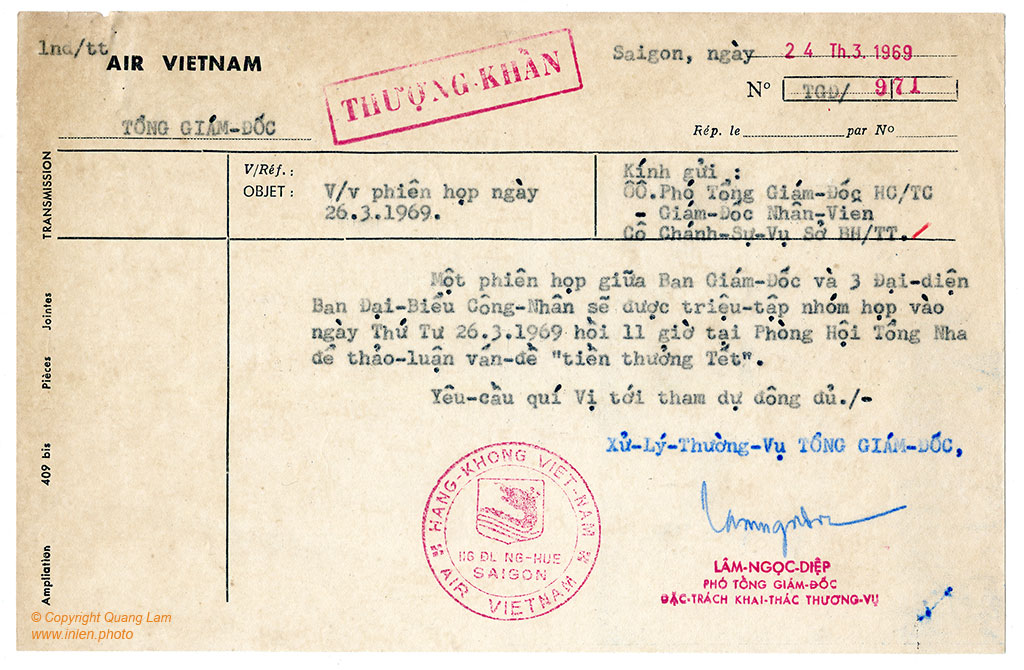 lnd/tt
AIR VIETNAM
THƯỢNG-KHẨN
Saigon, ngày 24 Th.3.1969
Nº TGĐ/ 971
TỔNG GIÁM-ĐỐC
Rép. le par Nº
TRANSMISSION
V/Réf. :
OBJET : V/v phiên họp ngày
26.3.1969.
Kính gửi :
ÔÔ.Phó Tổng Giám-Đốc HC/TC
- Giám-Đốc Nhân-Viên
Cô Chánh-Sự-Vụ Sở BH/TT.
Pièces Jointes
409 bis
Ampliation
Một phiên họp giữa Ban Giám-Đốc và 3 Đại-diện
Ban Đại-Biểu Công-Nhân sẽ được triệu-tập nhóm họp vào
ngày Thứ Tư 26.3.1969 hồi 11 giờ tại Phòng Hội Tổng Nha
để thảo-luận vấn-đề "tiền thưởng Tết".
Yêu-cầu quí Vị tới tham dự đông đủ./-
Xử-Lý-Thường-Vụ TỔNG GIÁM-ĐỐC,
HANG-KHONG VIET-NAM
116 ĐL NG-HUE
SAIGON
AIR VIETNAM
LÂM-NGỌC-DIỆP
PHÓ TỔNG GIÁM-ĐỐC
ĐẶC-TRÁCH KHAI-THÁC THƯƠNG-VỤ
© Copyright Quang Lam
www.inlen.photo